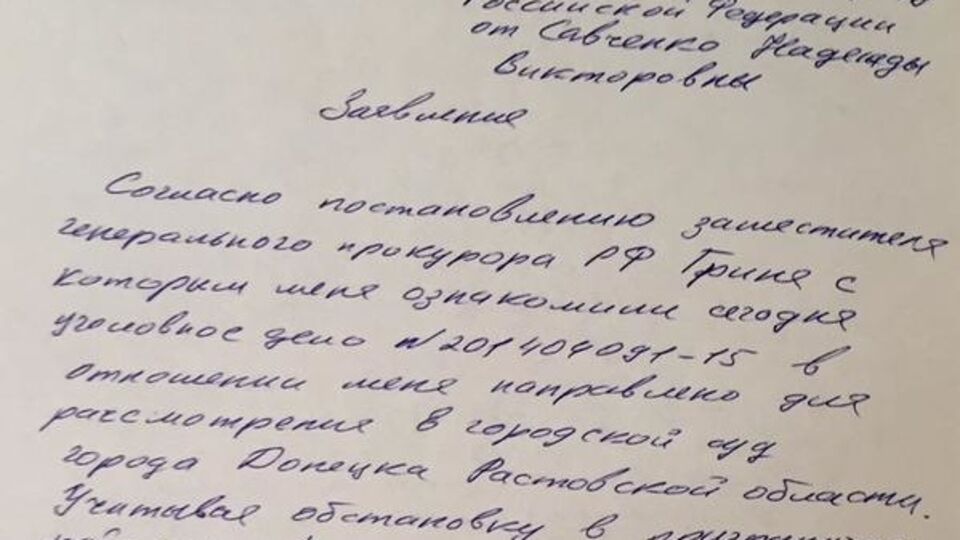 Российской Федерации
от Савченко Надежды
Викторовны
Заявление
Согласно постановлению заместителя
генерального прокурора РФ Гриня с
которым меня ознакомили сегодня
уголовное дело N201404091-15 в
отношении меня направлено для
рассмотрения в городской суд
города Донецка Растовской области.
Учитывая обстановку в